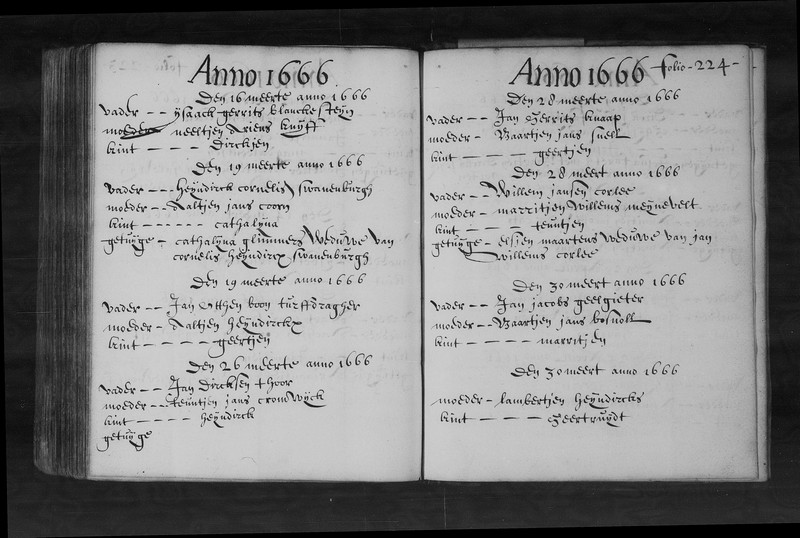 Anno 1666
Den 16 meerte anno 1666
vader - - ysaack gerrits blanckesteyn
moeder neeltjen driens kruyff
kint - - - - - Dirckjen
Den 19 meerte anno 1666
vader - - - heyndirck cornelis swanenburgh
moeder - - Aaltjen jans coorn
kint - - - - - cathalyna
getuyge - cathalyna glimmers weduwe van
cornelis heyndircx swanenburgh
Den 19 meerte anno 1666
vader - - - Jan Otthen boon turffdragher
moeder - Aaltjen heyndirckx
kint - - - - - geertjen
Den 26 meerte anno 1666
vader - - Jan Dircksen thoor
moeder - - teuntjen jans cromwyck
kint - - - - - heyndirck
getuyge
Anno 1666 folio - 224 -
Den 28 meerte anno 1666
vader - - Jan Gerrits knaap
moeder - Baartjen jans snell
kint - - - - - geertjen
Den 28 meert anno 1666
vader - - Willem jansen corlee
moeder - marritjen willems meynevelt
kint - - - - - teuntjen
getuyge - elsien maartens weduwe van jan
willems corlee
Den 30 meert anno 1666
vader - - Jan jacobs geelgieter
moeder - - Baartjen jans bosnoll
kint - - - - marritjen
Den 30 meert anno 1666
moeder - lambertjen heyndircks
kint - - - - Geertruydt